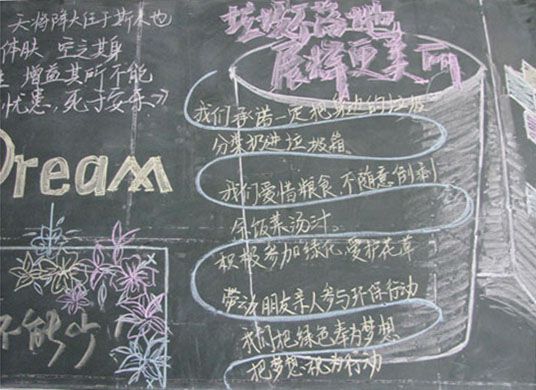 天将降大任于斯人也
体肤 空乏其身
增益其所不能
忧患，死于安乐》
Dream
垃圾不落地
展将更美丽
我们承诺一定把身边的垃圾
分类扔进垃圾箱
我们爱惜粮食 不随意倒剩
余饭菜汤汁。
积极参加绿化、爱护花草
带动朋友亲人参与环保行动
我们把绿色奉为梦想
把梦想秋为行动
不能少